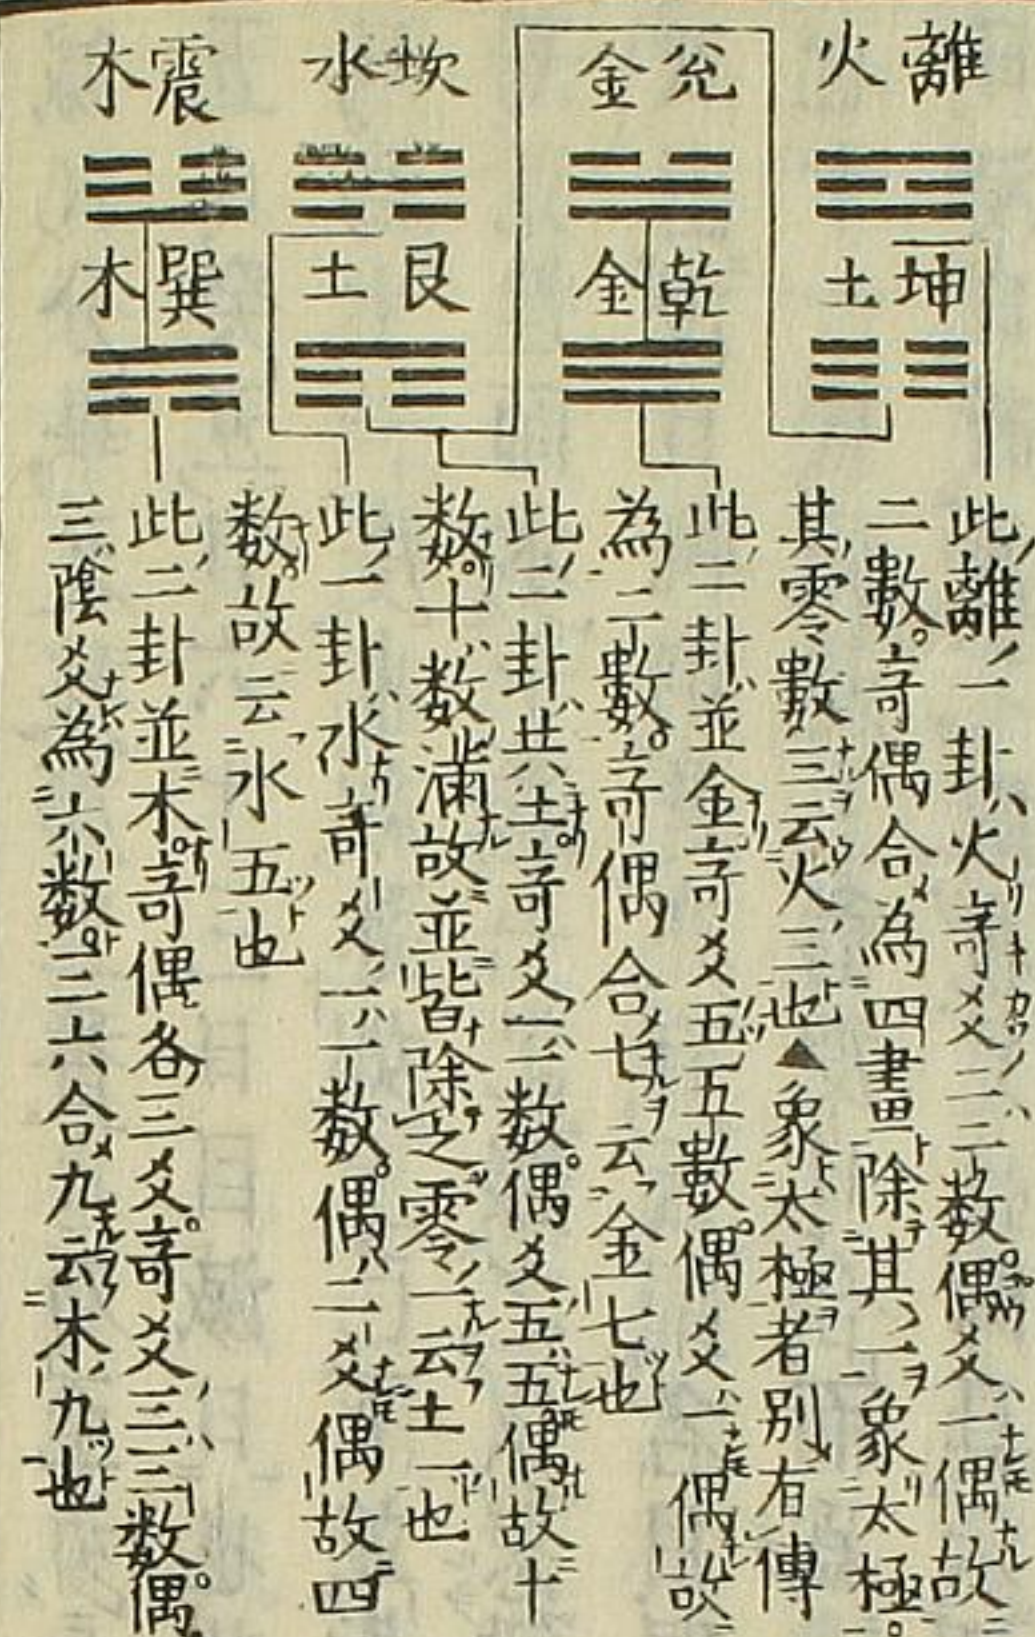 離火
坤土
兊金
乾金
坎水
艮土
震木
巽木
此離一卦火竒爻二二数偶爻一偶故
二數竒偶合為四畫除其一象太極
其零數三云火三也▲象太極者別有傳
此二卦並金竒爻五五數偶爻一偶故
為二數竒偶合七云金七也
此二卦共土竒爻一一数偶爻五五偶故十
数十数滿故並皆除之零一云土一也
此一卦水竒爻一一数偶二爻偶故四
数故云水五也
此二卦並木竒偶各三爻竒爻三三数偶
三陰爻為六数三六合九云木九也